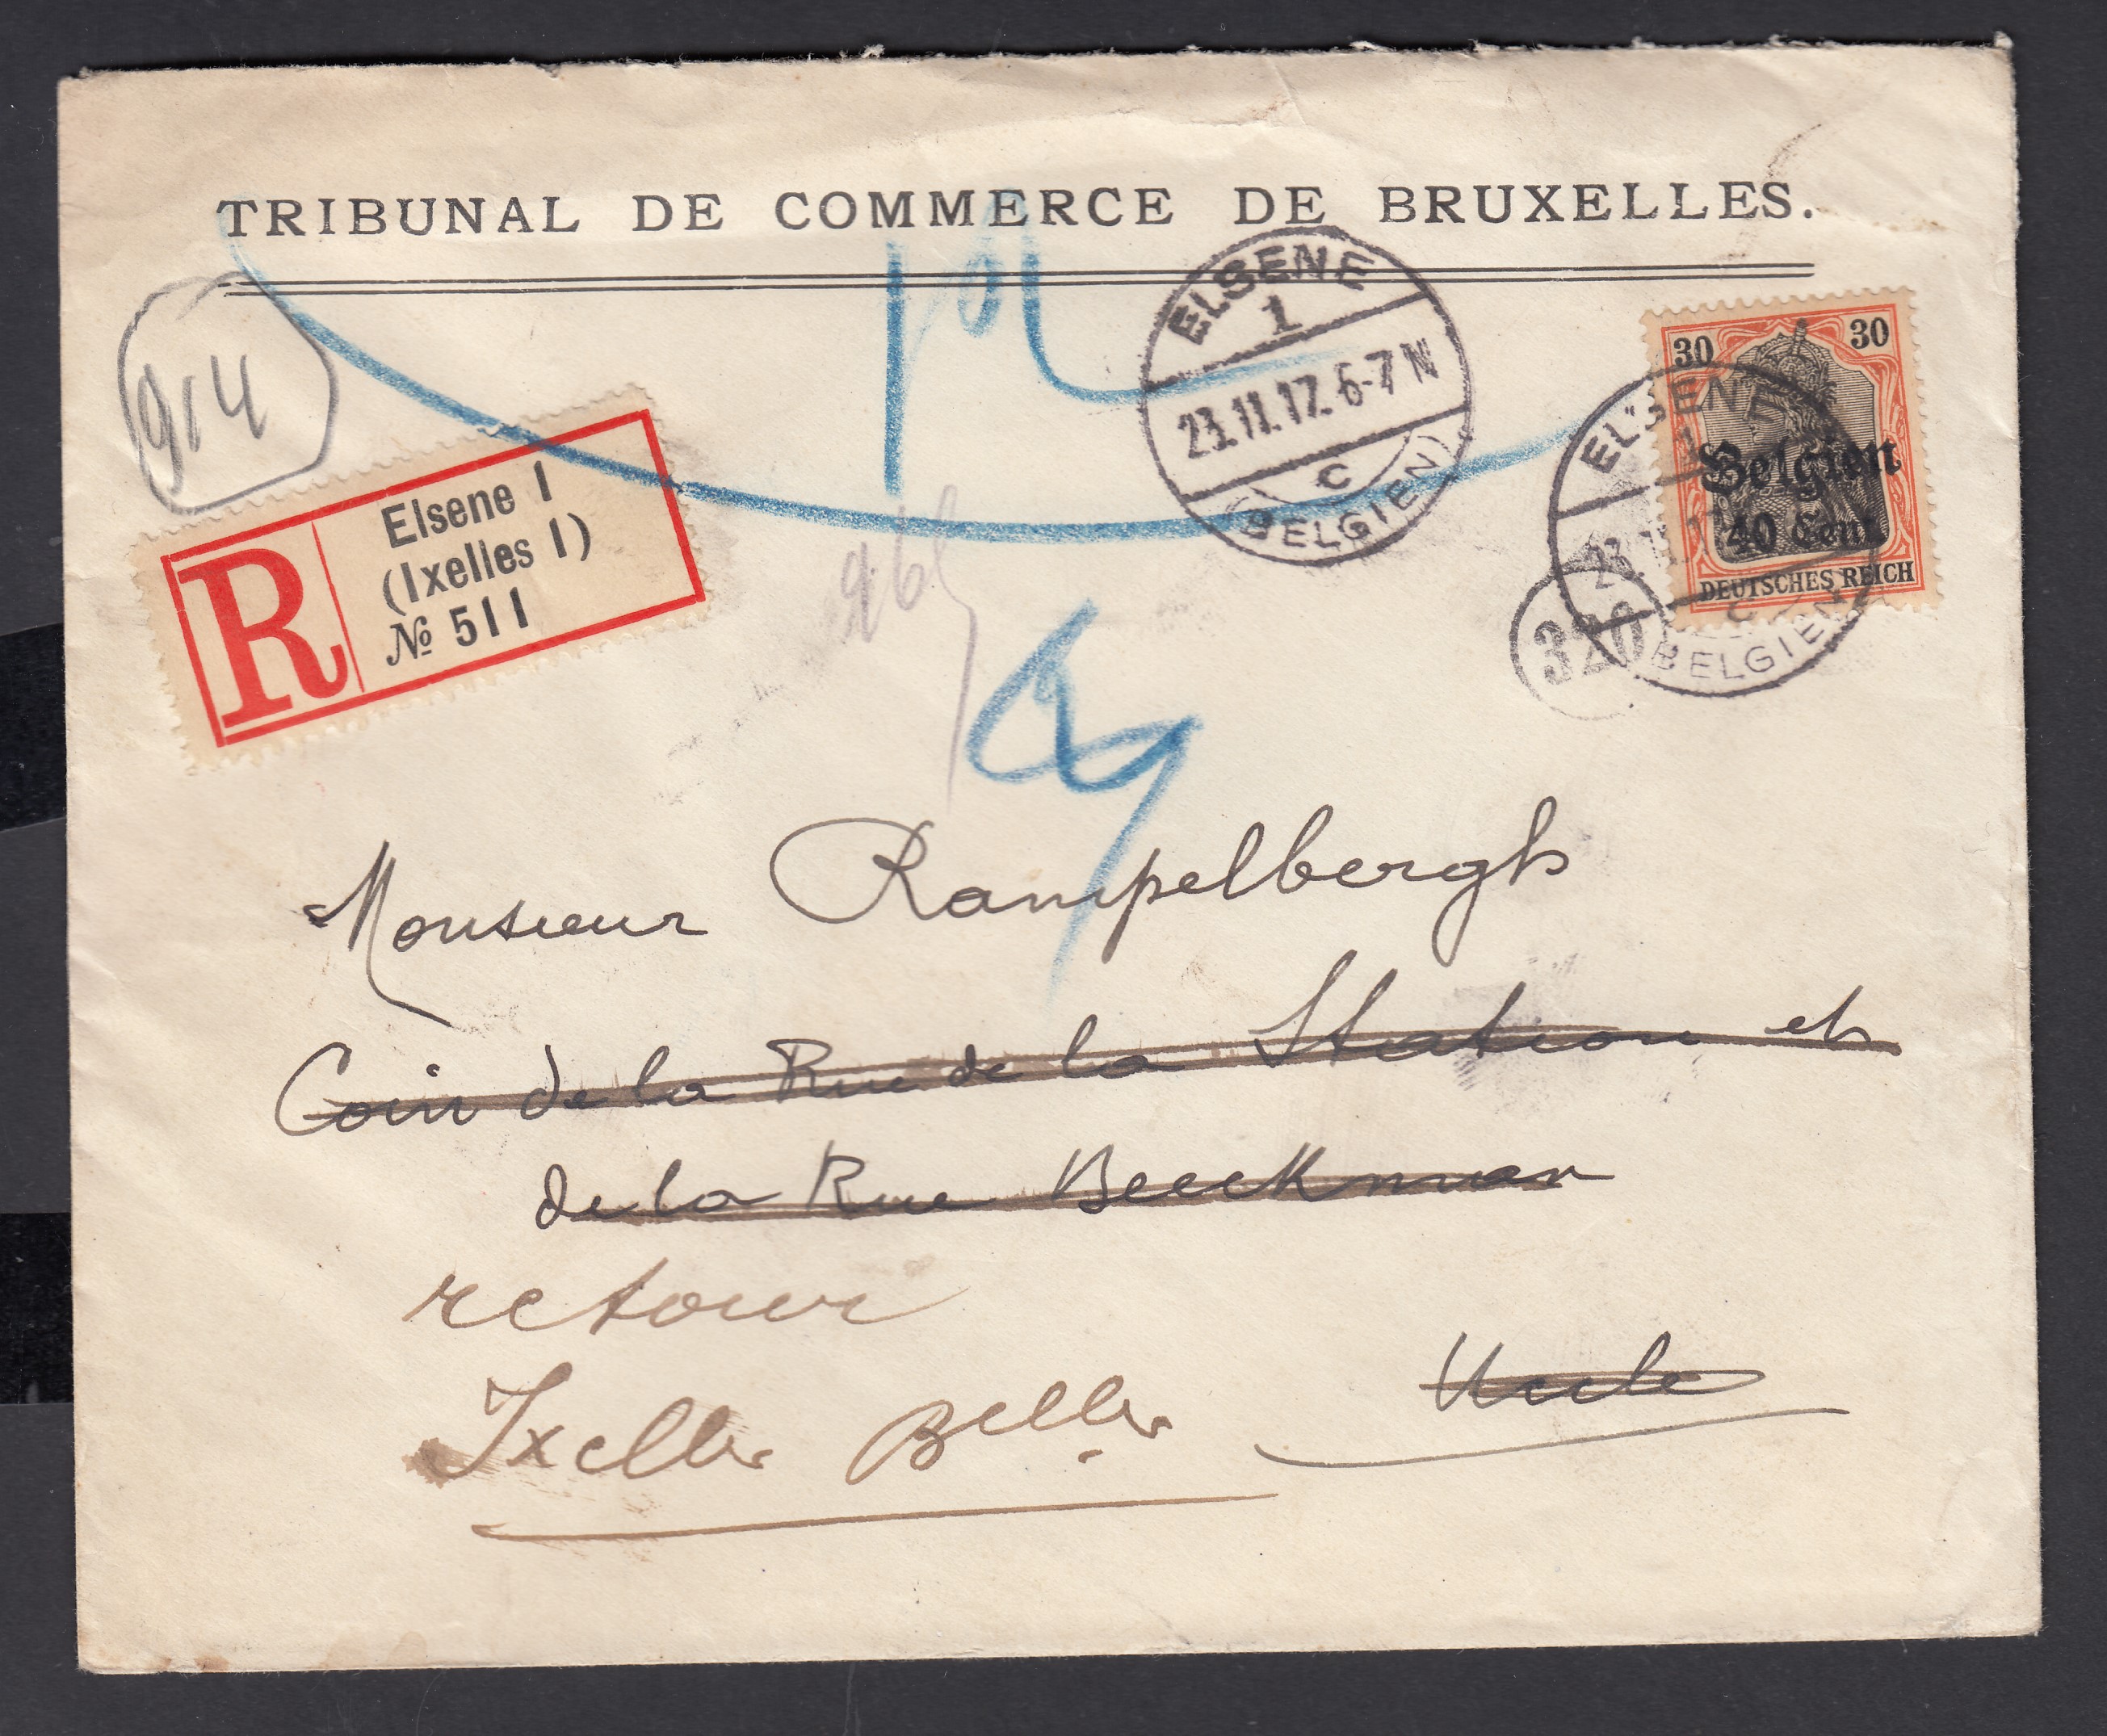 TRIBUNAL DE COMMERCE DE BRUXELLES.
914
R
Elsene 1
(Ixelles 1)
№ 511
ELSENE
1
23.11.17. 6-7 N
C
(BELGIEN)
30 30
Belgien
40 Cent
DEUTSCHES REICH
ELSENE
1
23.11.17
C
BELGIEN
320
Monsieur Rampelbergh
Coin de la Rue de la Station et
de la Rue Beeckman
retour
Uccle
Ixelles